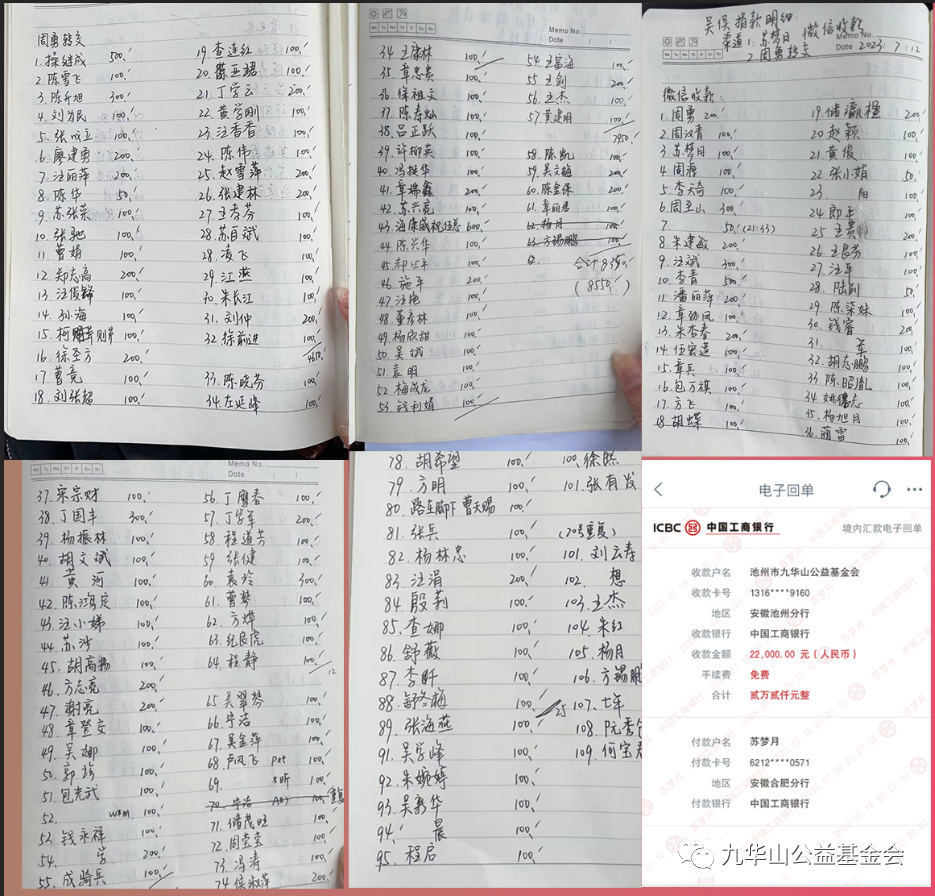 周勇转交
1. 操继成 500
2. 陈雪飞 100
3. 陈升旭 300
4. 刘为民 100
5. 张成立 100
6. 廖建勇 200
7. 汪丽萍 200
8. 陈华 50
9. 苏张荣 100
10. 张驰 100
11. 曹娟 100
12. 郑志高 200
13. 汪俊锋 100
14. 孙海 100
15. 柯 100
16. 徐圣方 200
17. 曹亮 100
18. 刘张超 100
19. 查连红 100
20. 陈亚珺 100
21. 丁学云 200
22. 黄学刚 100
23. 汪香香 100
24. 陈伟 100
25. 赵雪萍 200
26. 张建林 200
27. 王春芬 100
28. 苏自斌 100
29. 凌飞 100
29. 江燕 100
30. 朱长江 100
31. 刘仲 200
32 徐前进 100
4650
33. 陈晓芬 100
34. 左延峰 100
Memo No.
Date
34. 王康林 100
35. 章忠贵 100
36. 徐祖文 100
37. 陈寿灿 100
38. 吕正跃 100
39. 许柳英 100
40. 冯操华 100
41. 章瑞鑫 200
42. 苏兴亮 100
43. 海康威视 600
44. 陈兴华 100
45. 郝江平 100
46. 施军 200
47. 汪艳 100
48. 董彦林 100
49. 杨欣甜 100
50. 吴斌 100
51. 袁明 100
52. 梅成龙 100
53. 钱利娟 100
54. 王富海 100
55. 王剑 200
56. 王杰 200
57. 黄建明 100
7950
58. 陈凯 100
59. 吴文梅 200
60. 陈金保 200
61. 章丽君 100
62. 杨月 100
63. 方锡鹏 100
合计
(8550)
吴俣捐款明细:
渠道:1. 苏梦月 微信收款
2. 周勇转交
Memo No.
Date 2023. 7. 12
微信收款:
1. 周勇 200
2. 周汉青 100
3. 苏梦月 100
4. 周源 100
5. 李元奇 100
6. 周至山 300
7. 50 (21:33)
8. 朱建敏 200
9. 汪斌 300
10. 李青 500
11. 潘丽萍 200
12. 章劲凤 100
13. 朱杏春 200
14. 伍宏莲 100
15. 章兵 100
16. 包万祺 100
17. 方飞 100
18. 胡蝶 100
19. 储瀛楹 200
20 赵颖 100
21 黄俊 100
22 张小娟 50
23 阳 100
24 郎平 100
25 王贵 200
26 王良芳 100
27 汪军 100
28. 陆剑 50
29 陈柒妹 100
30. 钱睿 200
31. 军 100
32. 胡志鹏 100
33. 陈昭胤 100
34. 姚德志 100
35. 杨旭月 100
36. 蔺雪 100
Memo No.
Date
37. 宋宗财 100
38. 丁国丰 300
39. 杨振林 100
40. 胡文斌 100
41. 黄河 100
42. 陈鸿定 100
43. 汪小娣 100
44. 苏沙 100
45. 胡高扬 100
46. 方志亮 200
47. 谢亮 200
48. 章登文 100
49. 吴娜 100
50. 郭 100
51. 包克武 100
52. 100
53. 钱永祥 100
54. 200
55. 成骑兵 100
56. 丁腾春 100
57. 丁学军 200
58 程道芳 100
59. 张健 100
60 袁玲 300
61. 曹梦 100
62. 方烨 100
63. 纪良院 100
64. 程静 100
12
65. 吴翠琴 100
66. 宁洁 100
67. 吴金萍 100
68. 卢凤飞 100
69. 100
70. 宁洁 100 重复
71. 储茂旺 100
72. 周莹莹 100
73. 冯涛 100
74. 侯淑萍 200
78. 胡希望 100
79. 方明 100
80. 路在脚下 曹天赐 100
81. 张兵 100
82. 杨林忠 100
83. 汪涓 200
84. 殷莉 100
85. 查娜 100
86. 舒薇 100
87. 李昕 100
88. 舒冬梅 100
89. 张海燕 100
91. 吴学峰 100
92. 朱婉婷 100
93. 吴新华 100
94. 晨 100
95. 程启 100
100. 徐熙
101. 张有发
(70号重复)
101. 刘云春
102. 想
103. 王杰
104. 朱红
105. 杨月
106. 方锡鹏
25
107. 七年
108. 阮秀
109. 何宝
电子回单
ICBC 中国工商银行
境内汇款电子回单
收款户名 池州市九华山公益基金会
收款卡号 1316****9160
地区 安徽池州分行
收款银行 中国工商银行
收款金额 22,000.00 元(人民币)
手续费 免费
合计 贰万贰仟元整
付款户名 苏梦月
付款卡号 6212****0571
地区 安徽合肥分行
付款银行 中国工商银行
九华山公益基金会